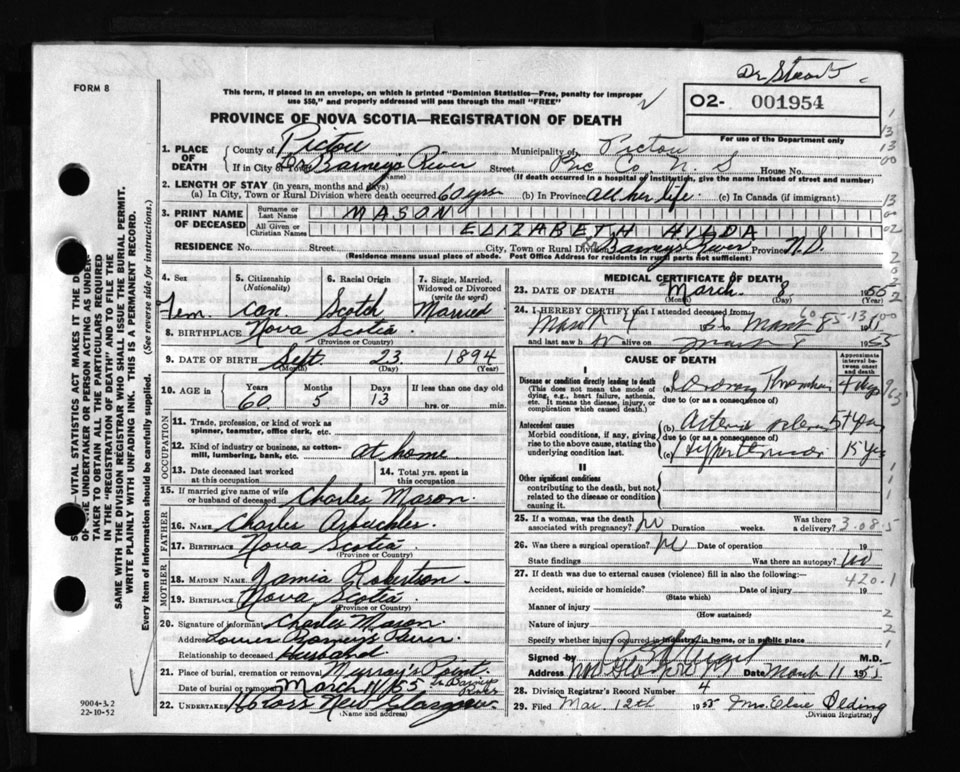 Dr Stewart
FORM 8
This form, if placed in an envelope, on which is printed "Dominion Statistics—Free, penalty for improper
use $50," and properly addressed will pass through the mail "FREE"
O2- 001954
For use of the Department only
PROVINCE OF NOVA SCOTIA—REGISTRATION OF DEATH
1. PLACE OF DEATH
County of Pictou Municipality of Pictou
If in City or Town Barney's River Street Pic Co, N S House No.
(Name) (If death occurred in a hospital or institution, give the name instead of street and number)
2. LENGTH OF STAY (in years, months and days)
(a) In City, Town or Rural Division where death occurred 60 yrs (b) In Province all her life (c) In Canada (if immigrant)
3. PRINT NAME OF DECEASED
Surname or Last Name MASON
All Given or Christian Names ELIZABETH HILDA
RESIDENCE No. Street City, Town or Rural Division Barneys River Province N.S.
(Residence means usual place of abode. Post Office Address for residents in rural parts not sufficient)
4. Sex Fem.
5. Citizenship (Nationality) Can.
6. Racial Origin Scotch
7. Single, Married, Widowed or Divorced (write the word) Married
8. BIRTHPLACE Nova Scotia
(Province or Country)
9. DATE OF BIRTH Sept. 23 1894
(Month) (Day) (Year)
10. AGE in Years 60 Months 5 Days 13 If less than one day old hrs. or min.
OCCUPATION
11. Trade, profession, or kind of work as spinner, teamster, office clerk, etc.
12. Kind of industry or business, as cotton-mill, lumbering, bank, etc. at home
13. Date deceased last worked at this occupation
14. Total yrs. spent in this occupation
15. If married give name of wife or husband of deceased Charles Mason
FATHER
16. NAME Charles Arbuckles
17. BIRTHPLACE Nova Scotia
(Province or Country)
MOTHER
18. MAIDEN NAME Jamia Robertson
19. BIRTHPLACE Nova Scotia
(Province or Country)
20. Signature of informant Charles Mason
Address Lower Barney's River
Relationship to deceased Husband
21. Place of burial, cremation or removal Murray's Point
Date of burial or removal March 11/55 Lr Barneys River
22. UNDERTAKER New Glasgow
(Name and address)
MEDICAL CERTIFICATE OF DEATH
23. DATE OF DEATH March 8 1955
(Month) (Day) (Year)
24. I HEREBY CERTIFY that I attended deceased from
March 4 to March 8
and last saw h alive on March 8 1955
CAUSE OF DEATH
Approximate interval between onset and death
I
Disease or condition directly leading to death
(This does not mean the mode of dying, e.g., heart failure, asthenia, etc. It means the disease, injury, or complication which caused death.)
(a) Coronary Thrombosis 4 days
due to (or as a consequence of)
Antecedent causes
Morbid conditions, if any, giving rise to the above cause, stating the underlying condition last.
(b) Arterio sclerosis 5+ yrs
due to (or as a consequence of)
(c) Hypertension 15 yrs
II
Other significant conditions
contributing to the death, but not related to the disease or condition causing it.
25. If a woman, was the death associated with pregnancy? no Duration weeks. Was there a delivery? 3.08.5
26. Was there a surgical operation? no Date of operation 19
State findings Was there an autopsy? no
27. If death was due to external causes (violence) fill in also the following:—
420.1
Accident, suicide or homicide? Date of injury 19
(State which)
Manner of injury
(How sustained)
Nature of injury
Specify whether injury occurred in industry, in home, or in public place
Signed by M.D.
Address New Glasgow Date March 11 1955
28. Division Registrar's Record Number 4
29. Filed Mar. 12th 1955 Mrs. Elsie Olding
(Division Registrar)
TAKER TO OBTAIN ALL THE PARTICULARS REQUIRED
IN THE "REGISTRATION OF DEATH" AND TO FILE THE
SAME WITH THE DIVISION REGISTRAR WHO SHALL ISSUE THE BURIAL PERMIT.
WRITE PLAINLY WITH UNFADING INK. THIS IS A PERMANENT RECORD.
Every item of information should be carefully supplied. (See reverse side for instructions.)
9004-3.2
22-10-52